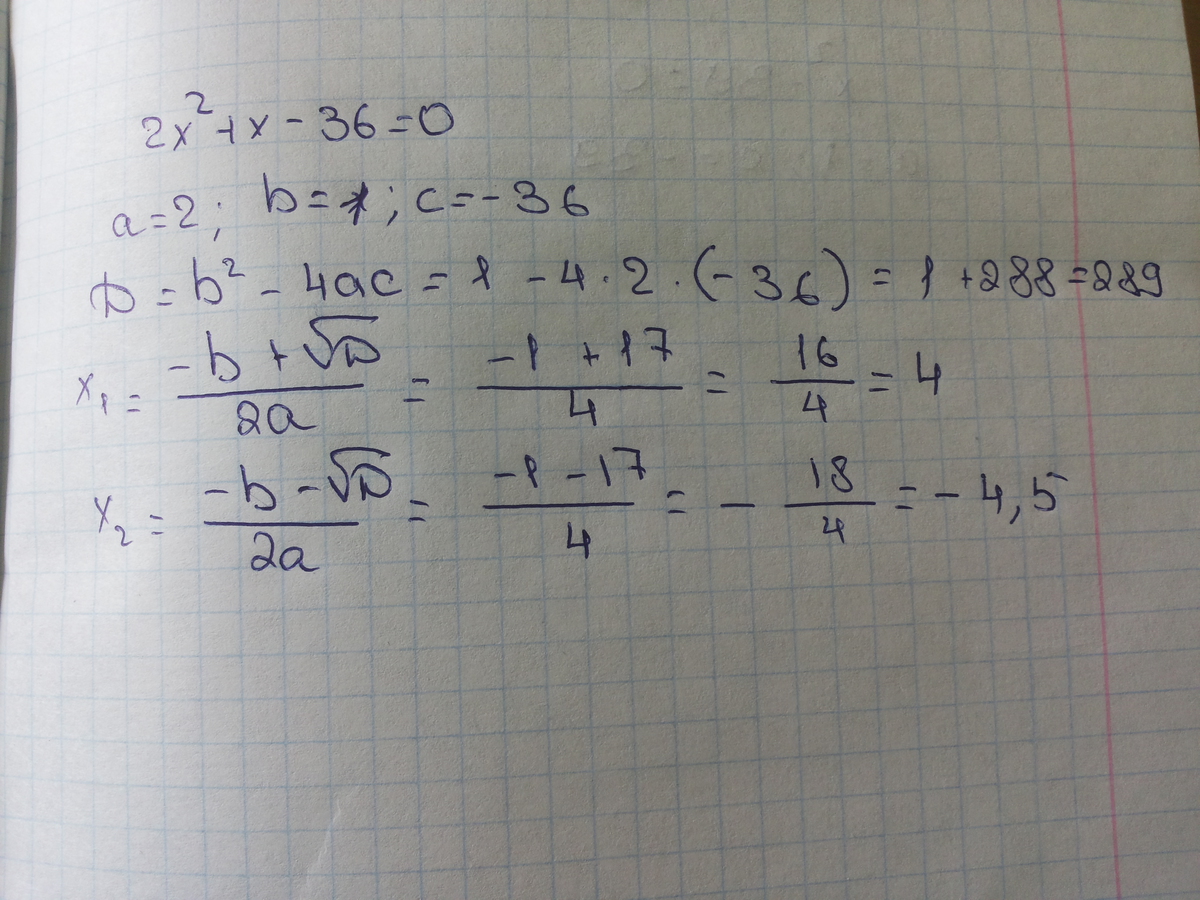 2x²+x-36=0
a=2; b=1; c=-36
D=b²-4ac=1-4·2·(-36)=1+288=289
x₁=(-b+√D)/2a=(-1+17)/4=16/4=4
x₂=(-b-√D)/2a=(-1-17)/4=-18/4=-4,5